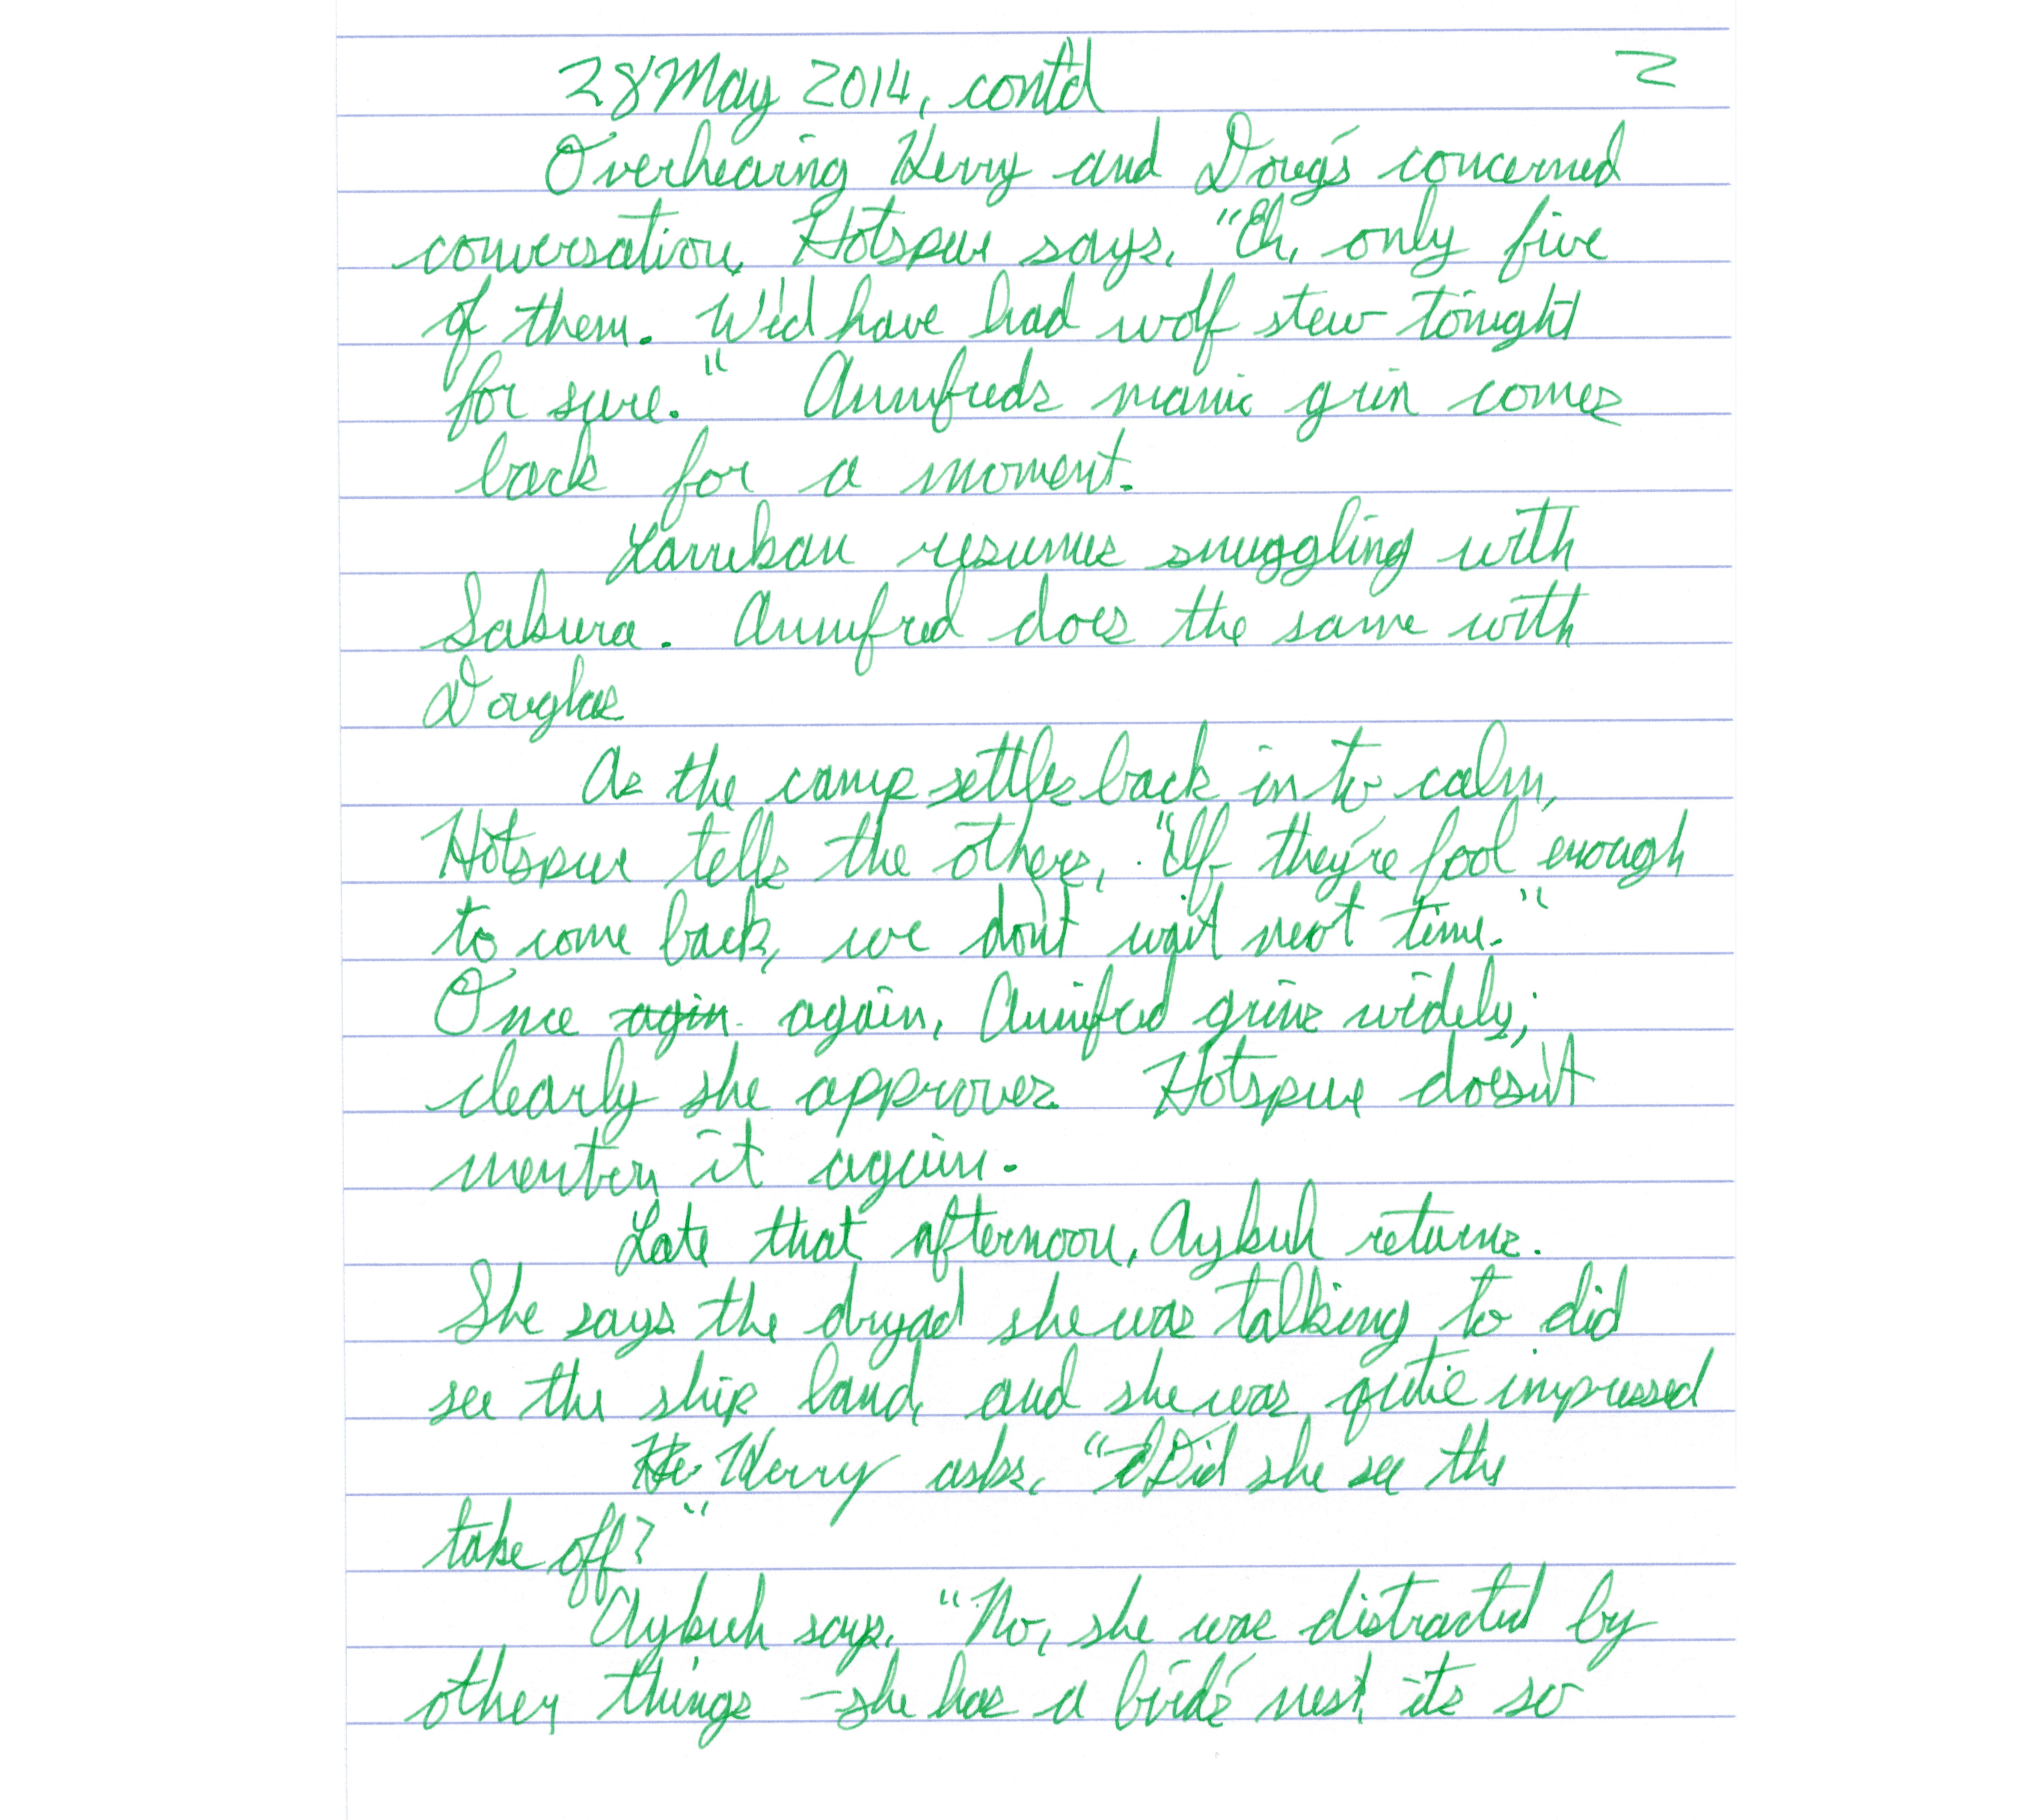 28 May 2014, cont'd 2
Overhearing Kerry and Doug's concerned
conversation, Hotspur says, "Eh, only five
of them. We'd have had wolf stew tonight
for sure." Annifred's manic grin comes
back for a moment.
Larreban resumes snuggling with
Sakura. Annifred does the same with
Douglas
As the camp settles back in to calm,
Hotspur tells the others, "If they're fool enough
to come back, we don't wait next time."
Once agin again, Annifred grins widely;
clearly she approves. Hotspur doesn't
mention it again.
Late that afternoon, Aybuh returns.
She says the dryad she was talking to did
see the ship land, and she was qutie impressed
He Kerry asks, "Did she see the
take off?"
Aybuh says, "No, she was distracted by
other things - she has a bird's nest, it's so